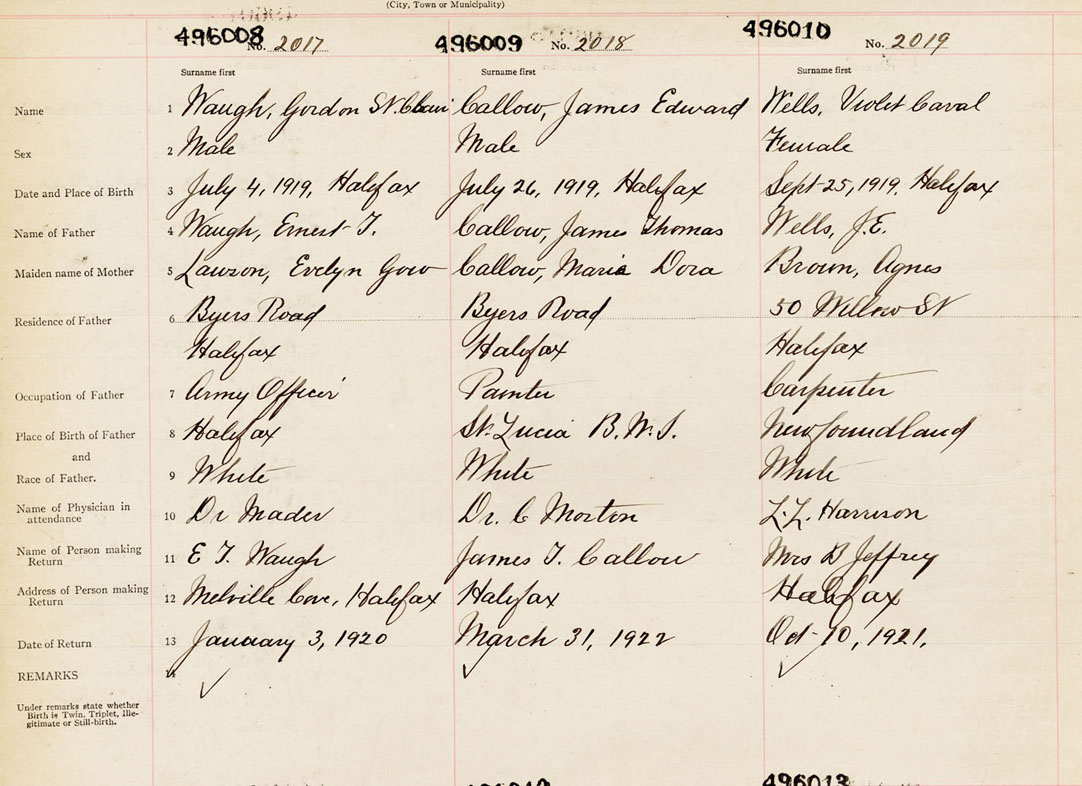 (City, Town or Municipality)
496008 No. 2017 496009 No. 2018 496010 No. 2019
Surname first Surname first Surname first
Name 1 Waugh, Gordon St. Clair Callow, James Edward Wells, Violet Caval
Sex 2 Male Male Female
Date and Place of Birth 3 July 4, 1919, Halifax July 26, 1919, Halifax Sept 25, 1919, Halifax
Name of Father 4 Waugh, Ernest T. Callow, James Thomas Wells, J.E.
Maiden name of Mother 5 Lawson, Evelyn Gow Callow, Maria Dora Brown, Agnes
Residence of Father 6 Byers Road Byers Road 50 Willow St
Halifax Halifax Halifax
Occupation of Father 7 Army Officer Painter Carpenter
Place of Birth of Father 8 Halifax St. Lucia B.W.I. Newfoundland
and
Race of Father. 9 White White White
Name of Physician in
attendance 10 Dr Mader Dr. C Morton L.L. Harrison
Name of Person making
Return 11 E T. Waugh James T. Callow Mrs B Jeffrey
Address of Person making
Return 12 Melville Cove, Halifax Halifax Halifax
Date of Return 13 January 3, 1920 March 31, 1922 Oct 10, 1921.
REMARKS 14
Under remarks state whether
Birth is Twin, Triplet, Ille-
gitimate or Still-birth.
496013